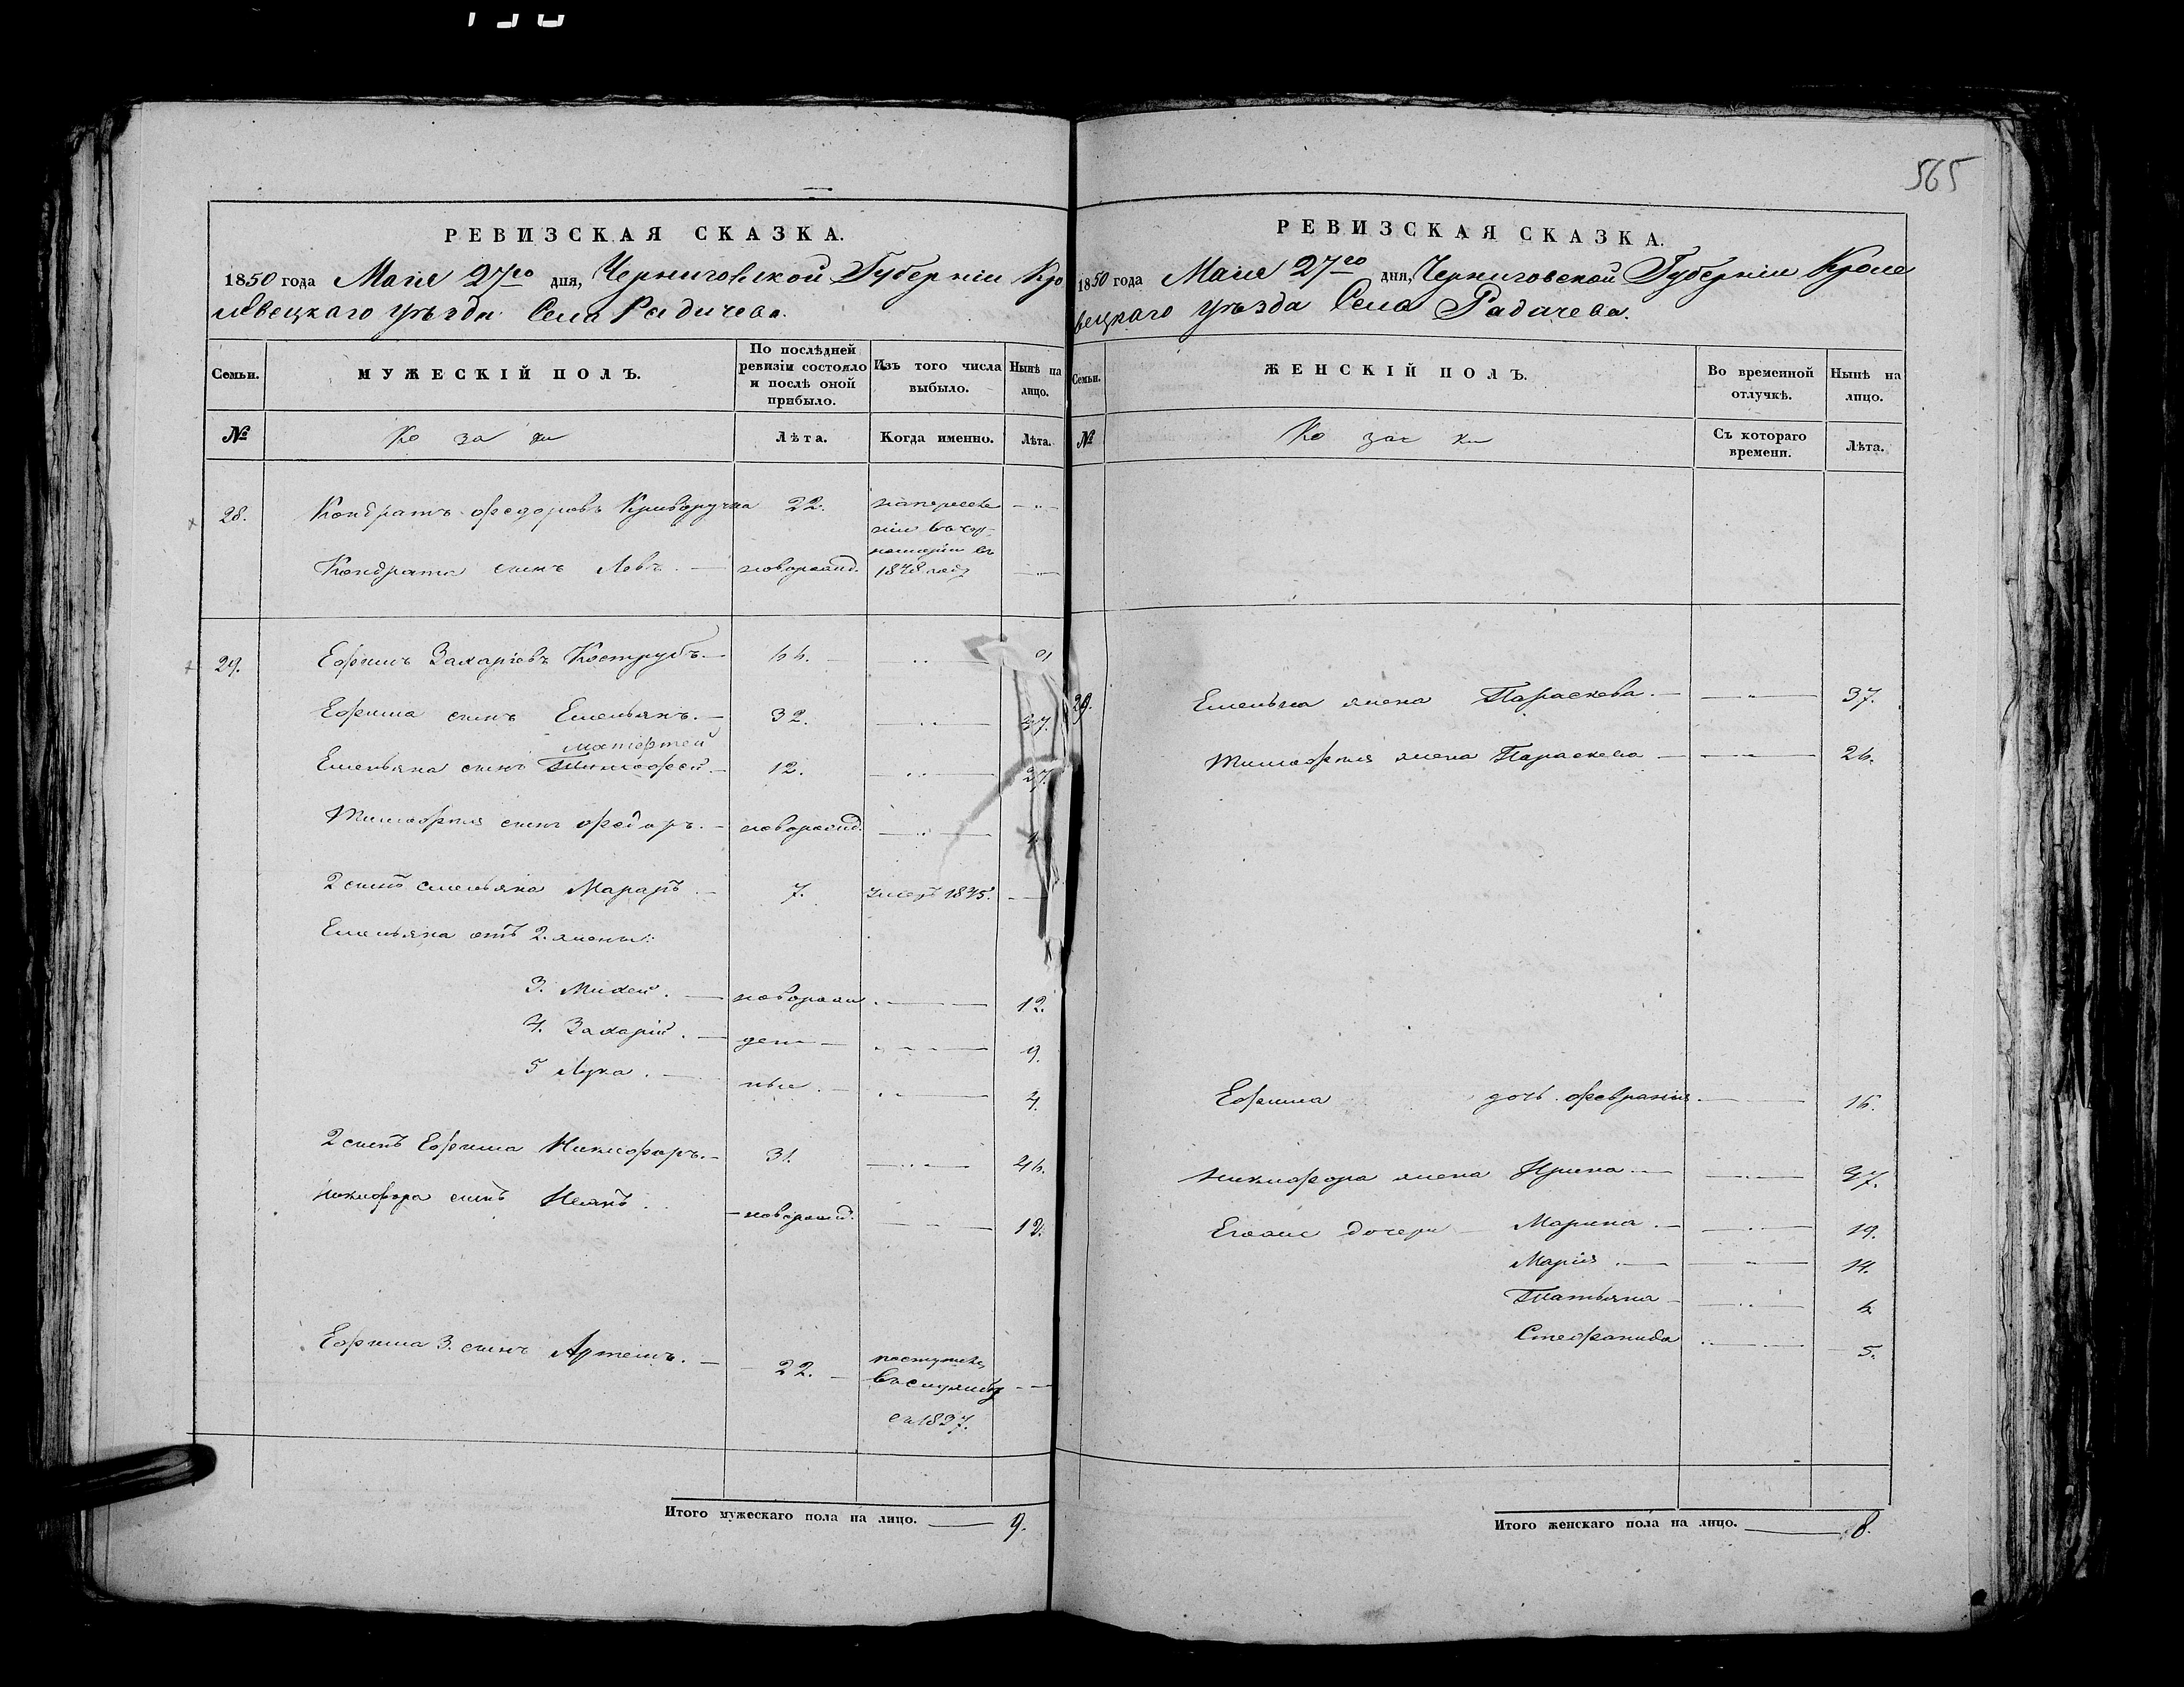 565
РЕВИЗСКАЯ СКАЗКА.
1850 года Маія 27го дня, Черниговской Губерніи Кро
левецкаго уѣзда Села Радичева.
Семьи. МУЖЕСКІЙ ПОЛЪ. По послѣдней ревизіи состояло и послѣ оной прибыло. Изъ того числа выбыло. Нынѣ на лицо.
№ Козаки Лѣта. Когда именно. Лѣта.
28. Кондратъ Федоровъ Криворучка 22.
Кондрата сынъ Левъ. новорожд. 1848 году
29. Ефимъ Захаріевъ Кострубъ.
Ефима сынъ Емельянъ. 32. 47.
Матофтей
Емельяна сынъ Тимофей. 12. 27.
Тимофея сынъ Федоръ. новорожд.
2 сынъ Емельяна Макаръ 7. умеръ 1845.
Емельяна отъ 2. жены:
3. Михей. новорож 12.
4. Захарій. ден 9.
5 Лука. ные 4.
2 сынъ Ефима Никифоръ. 31. 46.
Никифора сынъ Иванъ новорожд. 12.
Ефима 3. сынъ Артемъ. 22. поступилъ
въ службу
въ 1837.
Итого мужескаго пола на лицо. 9.
РЕВИЗСКАЯ СКАЗКА.
1850 года Маія 27го дня, Черниговской Губерніи Кроле
вецкаго уѣзда Села Радичева.
Семьи. ЖЕНСКІЙ ПОЛЪ. Во временной отлучкѣ. Нынѣ на лицо.
№ Козачки Съ котораго времени. Лѣта.
29. Емельяна жена Параскева. 37.
Тимофея жена Параскева 26.
Ефима дочь Февранія 16.
Никифора жена Ирина 47.
Егоже дочери Марина. 19.
Марія. 14.
Татьяна
Стефанида 5.
Итого женскаго пола на лицо. 8.